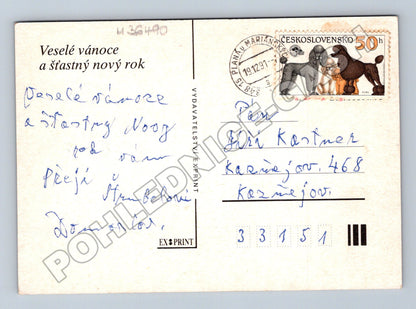 H 36490
Veselé vánoce
a šťastný nový rok
Veselé vánoce
a šťastný Nový
rok vám
Přejí
Domažlic
VYDAVATELSTVÍ EXPRINT
EXPRINT
PLANÁ U MARIÁNSKÝCH
19.12.91
ČESKOSLOVENSKO
50h
Pan
Jiří Kastner
Kaznějov. 468
Kaznějov.
33151
POHLEDNICE.CZ